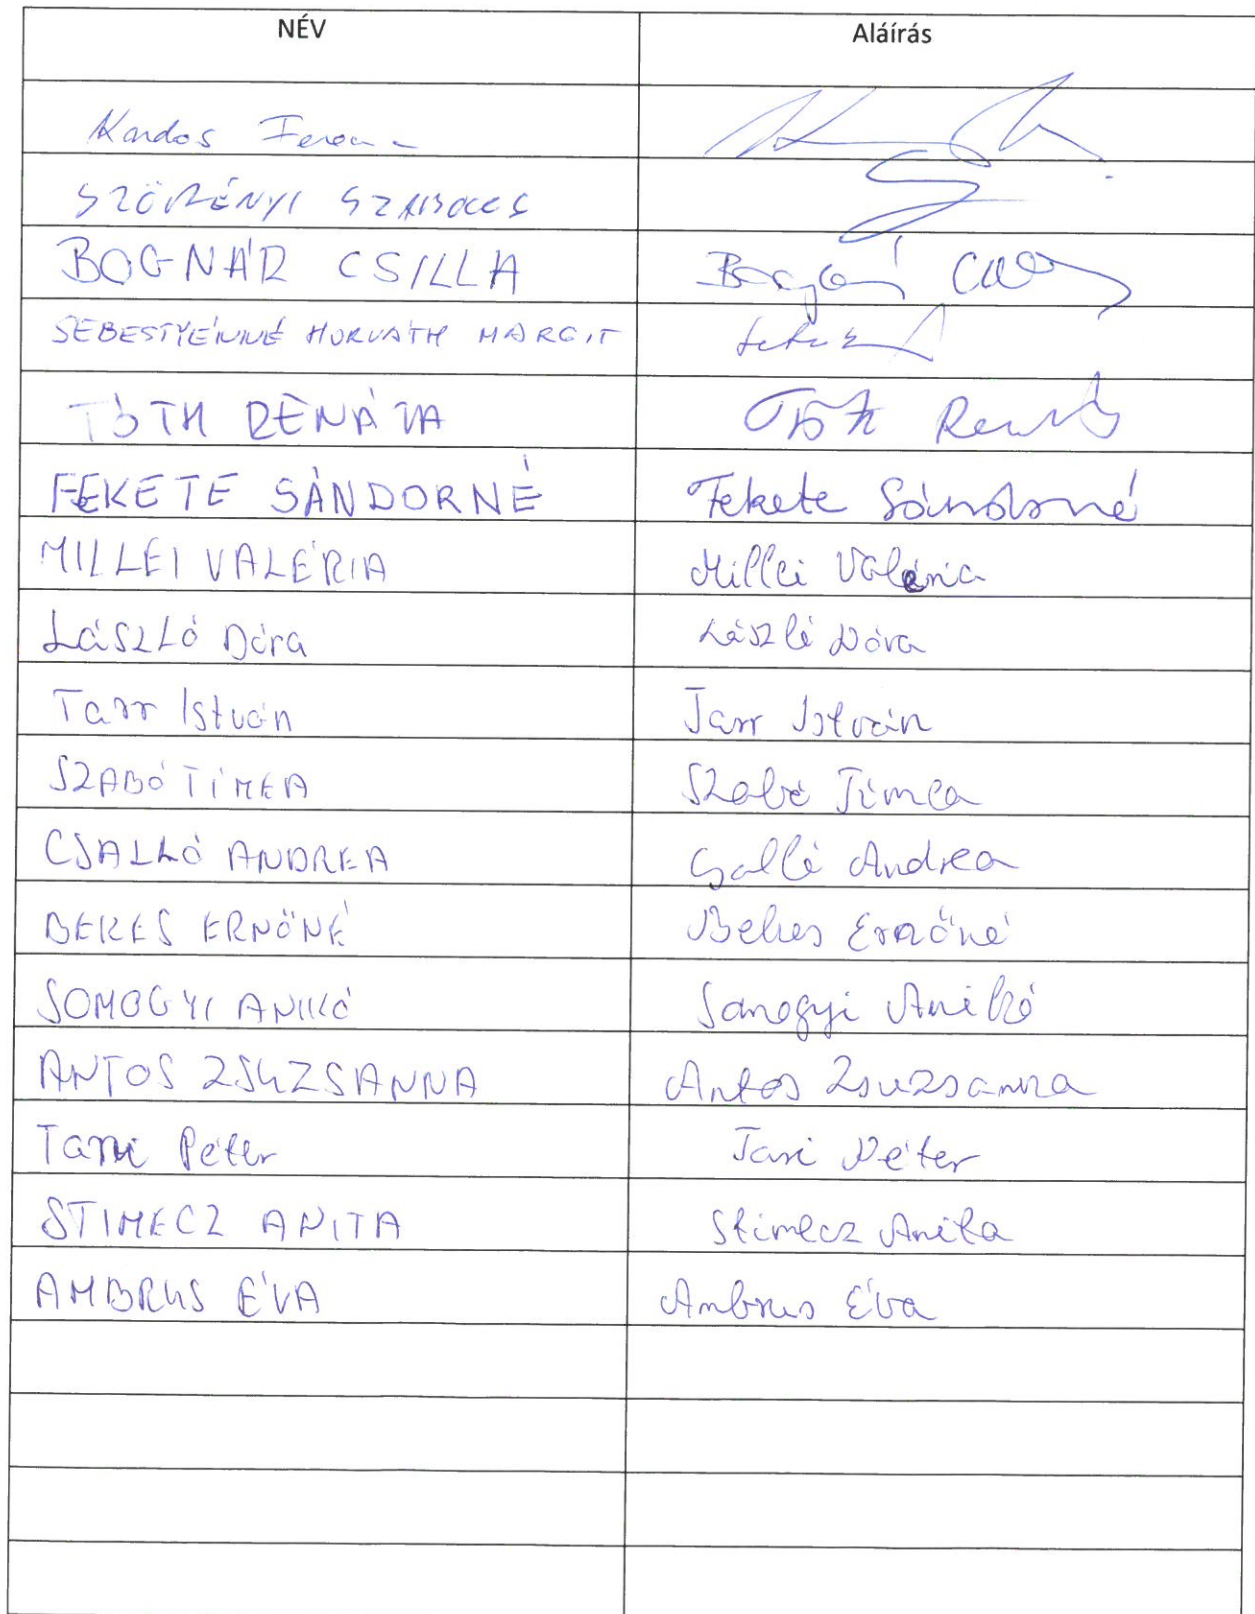 NÉV Aláírás
Kardos Ferenc
SZÖRÉNYI SZABOLCS
BOGNÁR CSILLA Bognár
SEBESTYÉNNÉ HORVÁTH MARGIT
TÓTH RENÁTA Tóth Renáta
FEKETE SÁNDORNÉ Fekete Sándorné
MILLEI VALÉRIA Millei Valéria
László Dóra László Dóra
Tarr István Tarr István
SZABÓ TÍMEA Szabó Tímea
CSALLÓ ANDREA Csalló Andrea
BEKES ERNŐNÉ Bekes Ernőné
SOMOGYI ANIKÓ Somogyi Anikó
ANTOS ZSUZSANNA Antos Zsuzsanna
Tari Péter Tari Péter
STIMECZ ANITA Stimecz Anita
AMBRUS ÉVA Ambrus Éva